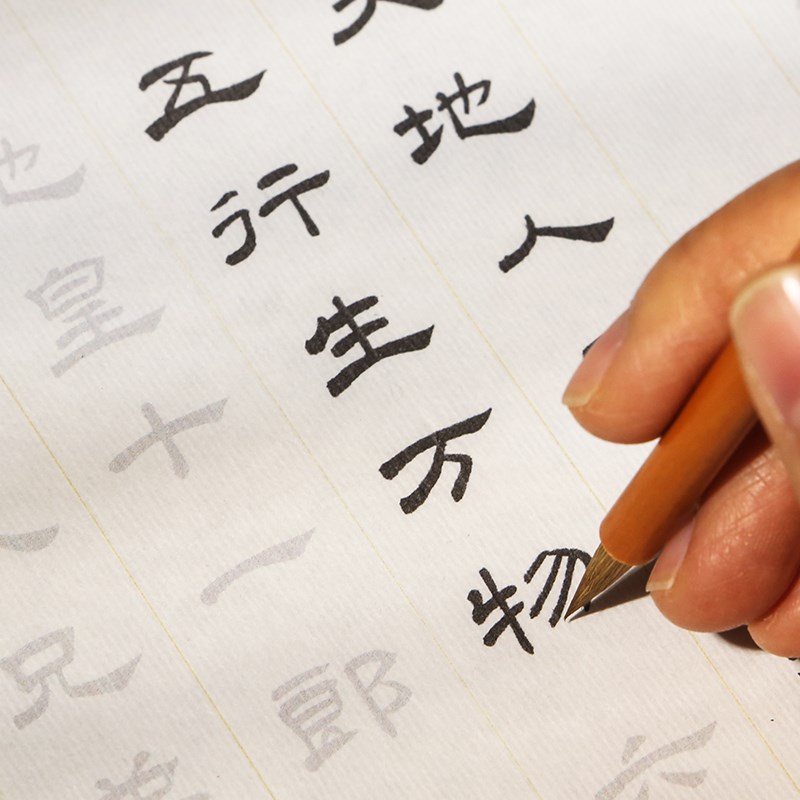 地人
五行生万物六
皇十一郎
兄